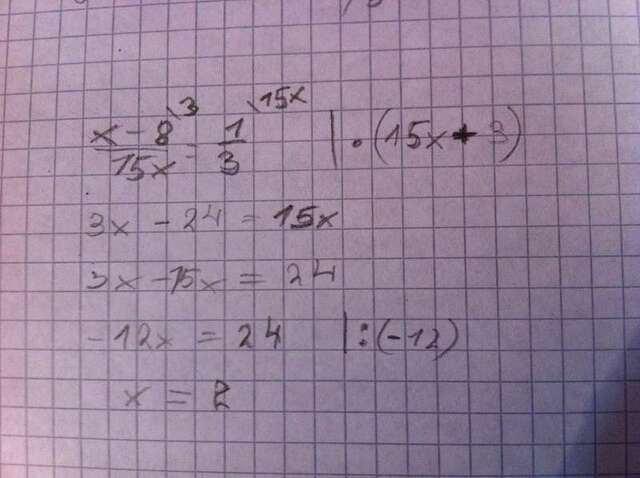 (x - 8)/15x \3 = 1/3 \15x | · (15x · 3)
3x - 24 = 15x
3x - 15x = 24
-12x = 24 | : (-12)
x = 2